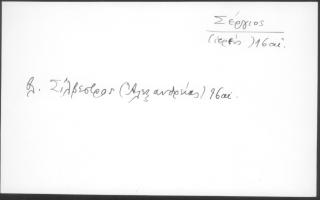 Σέργιος
(ιερεύς) 16αι.
βλ. Σίλβεστρος (Αλεξανδρείας) 16αι.